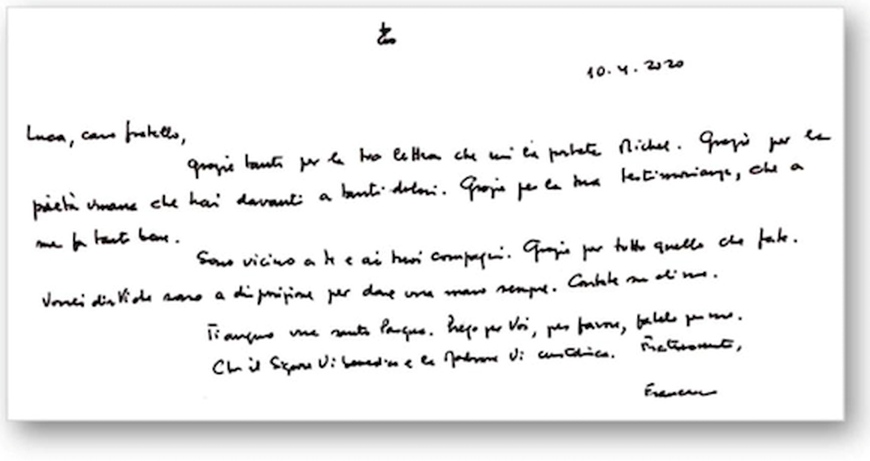 10.4.2020
Luca, caro fratello,
grazie tante per la tua lettera che mi ha portato Michel. Grazie per la
pietà umana che hai davanti a tanti dolori. Grazie per la tua testimonianza, che a
me fa tanto bene.
Sono vicino a te e ai tuoi compagni. Grazie per tutto quello che fate.
Vorrei dirVi che sono a disposizione per dare una mano sempre. Contate su di me.
Ti auguro una santa Pasqua. Prego per Voi, per favore, fatelo per me.
Che il Signore Vi benedica e la Madonna Vi custodisca. Fraternamente,
Francesco